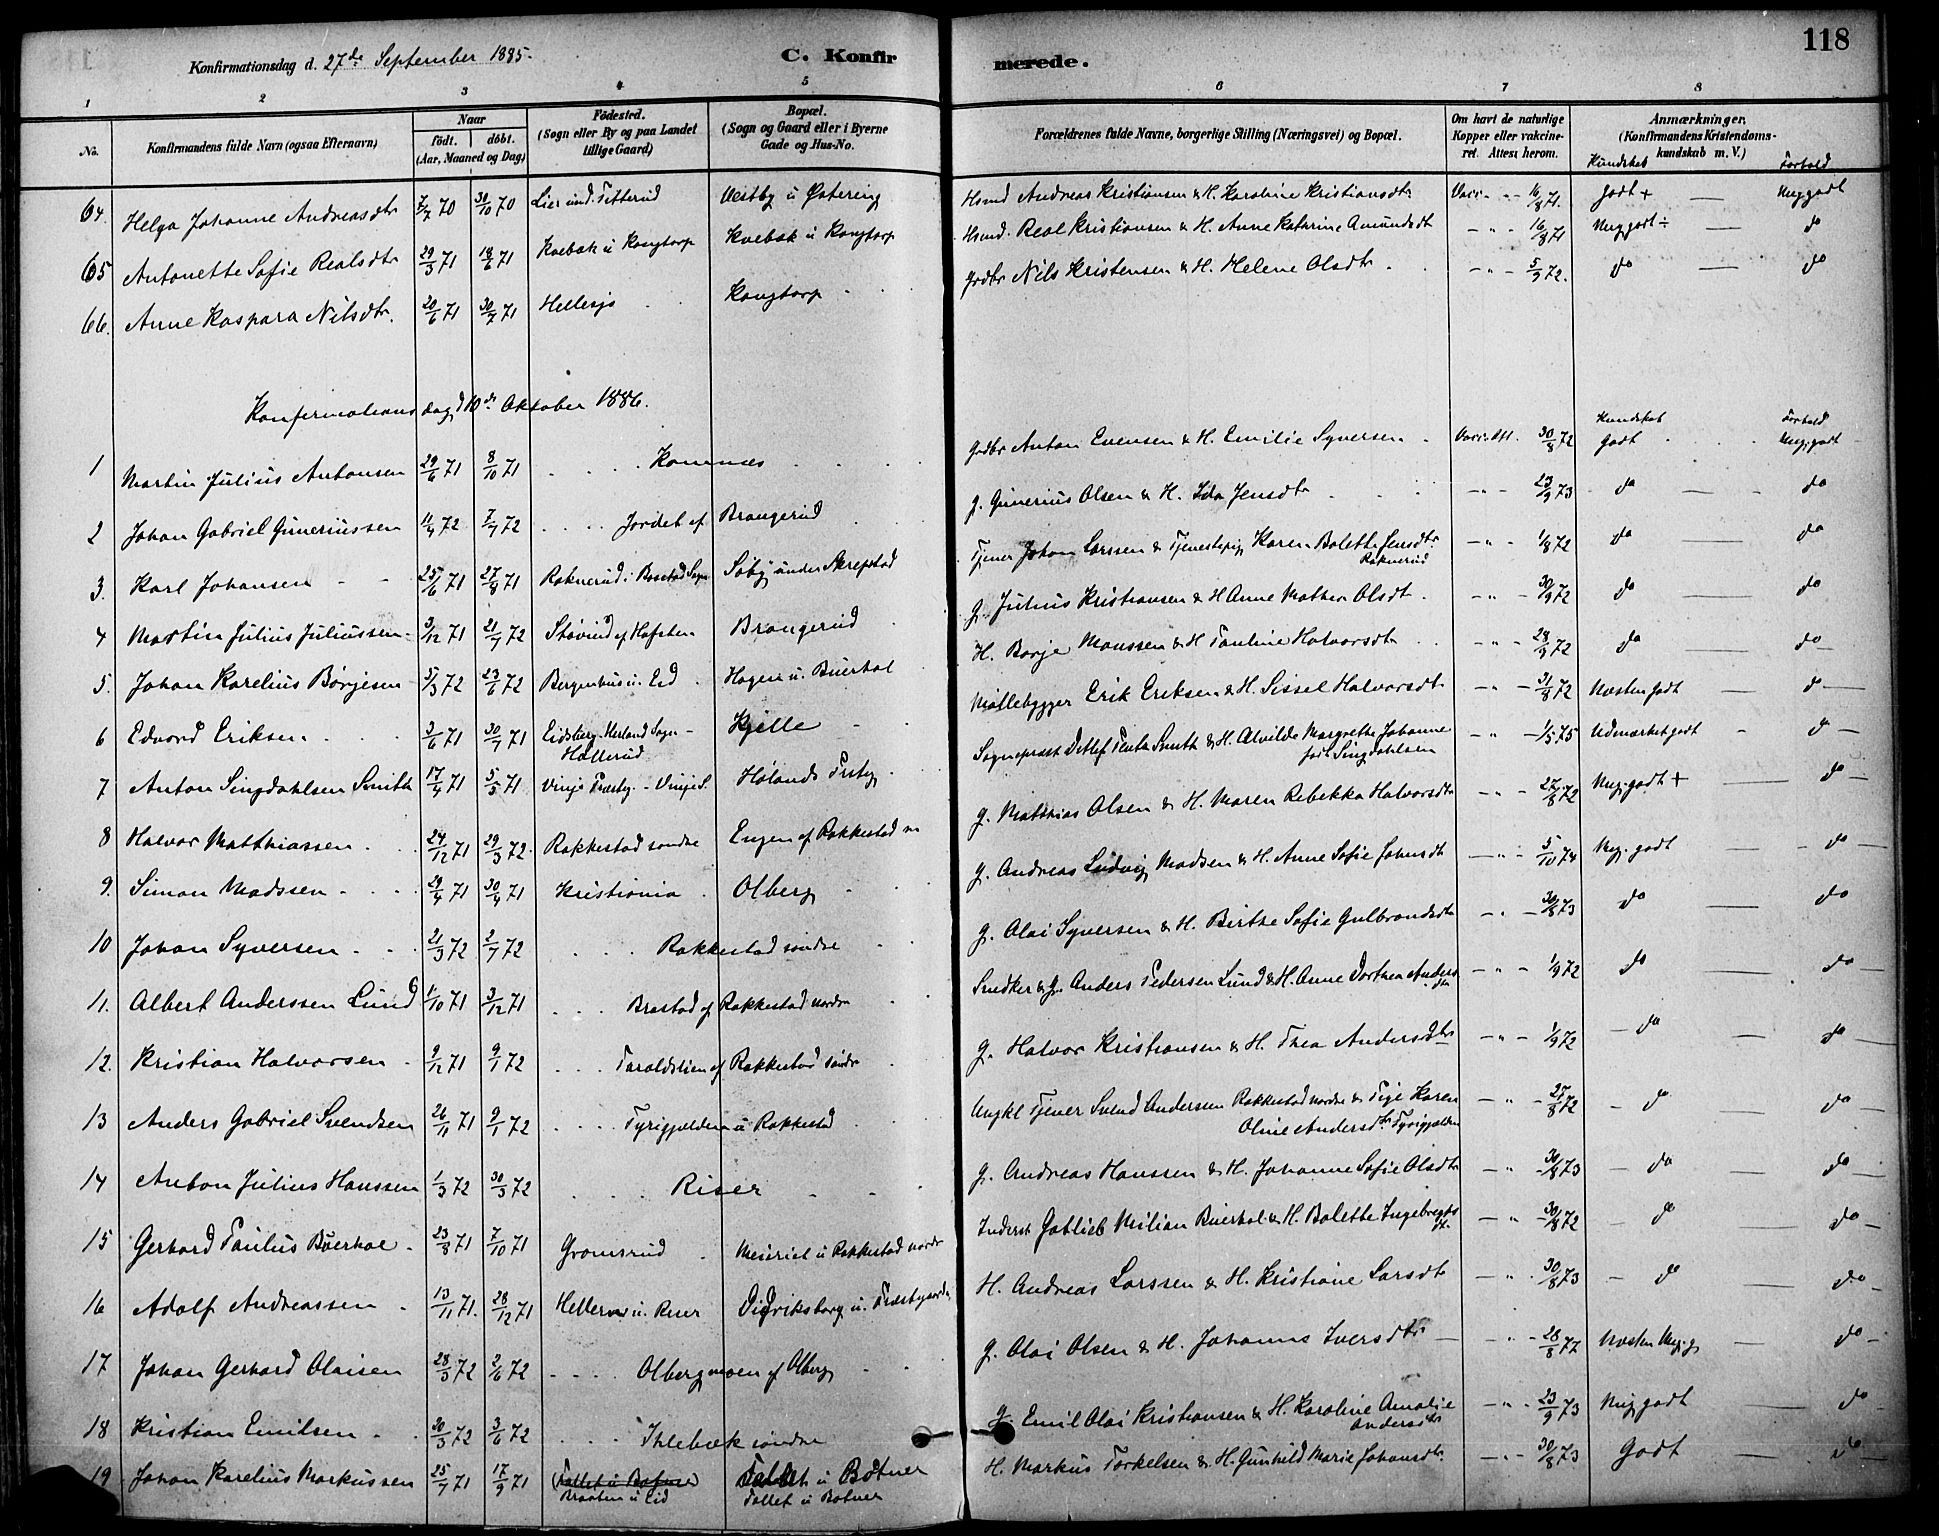 118
Konfirmationsdag d. 27de September 1885.
C. Konfirmerede.
1 2 3 4 5 6 7 8
No. Konfirmandens fulde Navn (ogsaa Efternavn) Naar født. døbt. (Aar, Maaned og Dag) Fødested. (Sogn eller By og paa Landet tillige Gaard) Bopæl. (Sogn og Gaard eller i Byerne Gade og Hus-No. Forældrenes fulde Navne, borgerlige Stilling (Næringsvei) og Bopæl. Om havt de naturlige Kopper eller vakcineret. Attest herom. Anmærkninger. (Konfirmandens Kristendomskundskab m. V.)
Kundskab Forhold
64. Helga Johanne Andreasdtr 7/7 70 30/10 70 Lier und. Titterud Vestby u Østering Hsmd Andreas Kristiansen & H. Karoline Kristiansdtr Vacc. - " - 16/8 71. Godt + — Meg godt
65 Antonette Sofie Realsdtr 29/3 71 18/6 71 Kvebæk u Kongtorp Kvebæk u Kongtorp Hsmd. Real Kristiansen & H. Anne Kathrine Amundsdt - " - 16/8 71 Meg godt ÷ — do
66. Anne Kaspara Nilsdtr. 20/6 71 30/7 71 Hellesjo Kongtorp Grdbr Nils Kristensen & H. Helene Olsdtr. - " - 5/9 72. do — do
Konfirmationsdag d 10de Oktober 1886.
Kundskab Forhold
1 Martin Julius Antonsen 29/6 71 8/10 71 Komnæs Grdbr Anton Evensen & H. Emilie Syversen Vacc. Att. 30/8 72 Godt Meg godt
2 Johan Gabriel Guneriussen 11/4 72 7/7 72 Jordet af Brangerud g. Gunerius Olsen & H. Ida Jensdtr - " - 23/9 73 do — do
3. Karl Johansen 25/6 71 27/8 71 Raknerud i Basstad Sogn Søby under Skrepstad Tjener Johan Larssen & Tjenestepig Karen Bolette Jensdtr Raknerud - " - 1/8 72 do do
4 Martin Julius Juliussen 3/12 71 21/7 72 Støvind af Hafsten Brangerud g. Julius Kristiansen & H Anne Mathea Olsdt. - " - 30/9 72 do — do
5. Johan Karelius Børjesen 5/3 72 23/6 72 Bergenhus u. Eid Hagen u. Buerhol H. Børje Monssen & H Pauline Halvorsdtr - " - 28/9 72 do — do
6 Edvard Eriksen 3/6 71 30/7 71 Eidsberg Herland Sogn - Hallerud Kjelle Møllebygger Erik Eriksen & H. Sissel Halvorsdt - " - 31/8 72 Næsten godt — do
7 Anton Singdahlsen Smith 17/4 71 5/5 71 Vinje Præstg. - Vinje S. Hølands Prstg. Sogneprest Detlef Smith & H. Alvilde Margrethe Johanne født Singdahlsen - " - 1/5 75 Udmærket godt - do
8 Halvor Matthiassen 24/12 71 29/3 72. Rakkestad søndre Engen af Rakkestad n g. Matthias Olsen & H. Maren Rebekka Halvorsdtr - " - 27/8 72 Meg. godt + — do
9. Simon Madssen 29/4 71 30/4 71 Kristiania Olberg g. Andreas Ludvig Madsen & H. Anne Sofie Johnsdt - " - 5/10 74 Meg. godt — do
10 Johan Syversen 21/3 72 2/7 72 Rakkestad søndre g. Olai Syversen & H. Birthe Sofie Gulbrandsdtr - " - 30/8 73 do — do
11. Albert Anderssen Lund 1/10 71 3/12 71 Brastad af Rakkestad nordre Snedker & g. Anders Pedersen Lund & H. Anne Dorthea Andersdtr - " - 1/9 72 do — do
12. Kristian Halvorsen 9/12 71 9/1 72 Taraldslien af Rakkestad søndr g. Halvor Kristiansen & H. Thea Andersdtr - " - 1/9 72 do — do
13 Anders Gabriel Svendsen 26/11 71 9/1 72 Tyrigjælden u Rakkestad Ungkl Tjener Svend Andersen Rakkestad nordre & Pige Karen Oline Andersdtr Tyrigjælden - " - 27/8 72 do do
14 Anton Julius Hanssen 1/3 72 30/3 72 Riser g. Andreas Hanssen & H. Johanne Sofie Olsdtr - " - 30/9 73 do — do
15 Gerhard Paulus Buerhol 23/8 71 7/10 71 Gromsrud Meieriet u Rakkestad nordr Inderst Gotlieb Milian Buerhol & H. Bolette Ingebregtsdt. - " - 30/8 72 do — do
16 Adolf Andreassen 13/11 71. 28/12 71 u. Riser Didriksborg u. Præstegaarden H. Andreas Larssen & H. Kristiane Larsdtr - " - 30/8 73 do — do
17 Johan Gerhard Olaisen 28/3 72 2/6 72 Olbergmoen af Olberg g. Olai Olsen & H. Johanne Iversdtr - " - 28/8 77 Næsten Meg. g — do
18 Kristian Emilsen 20/3 72 3/6 72 Ihlebæk søndre g. Emil Olai Kristiansen & H. Karoline Amalie Andersdtr - " - 23/9 73 Meg godt — do
19 Johan Karelius Markussen 25/7 71 17/9 71 (Fallet u Botner) Braaten u Eid Fallet u Botner Fallet u Botner H. Markus Torkelsen & H. Gunhild Marie Johansdtr. - " - 30/8 73 Godt — do